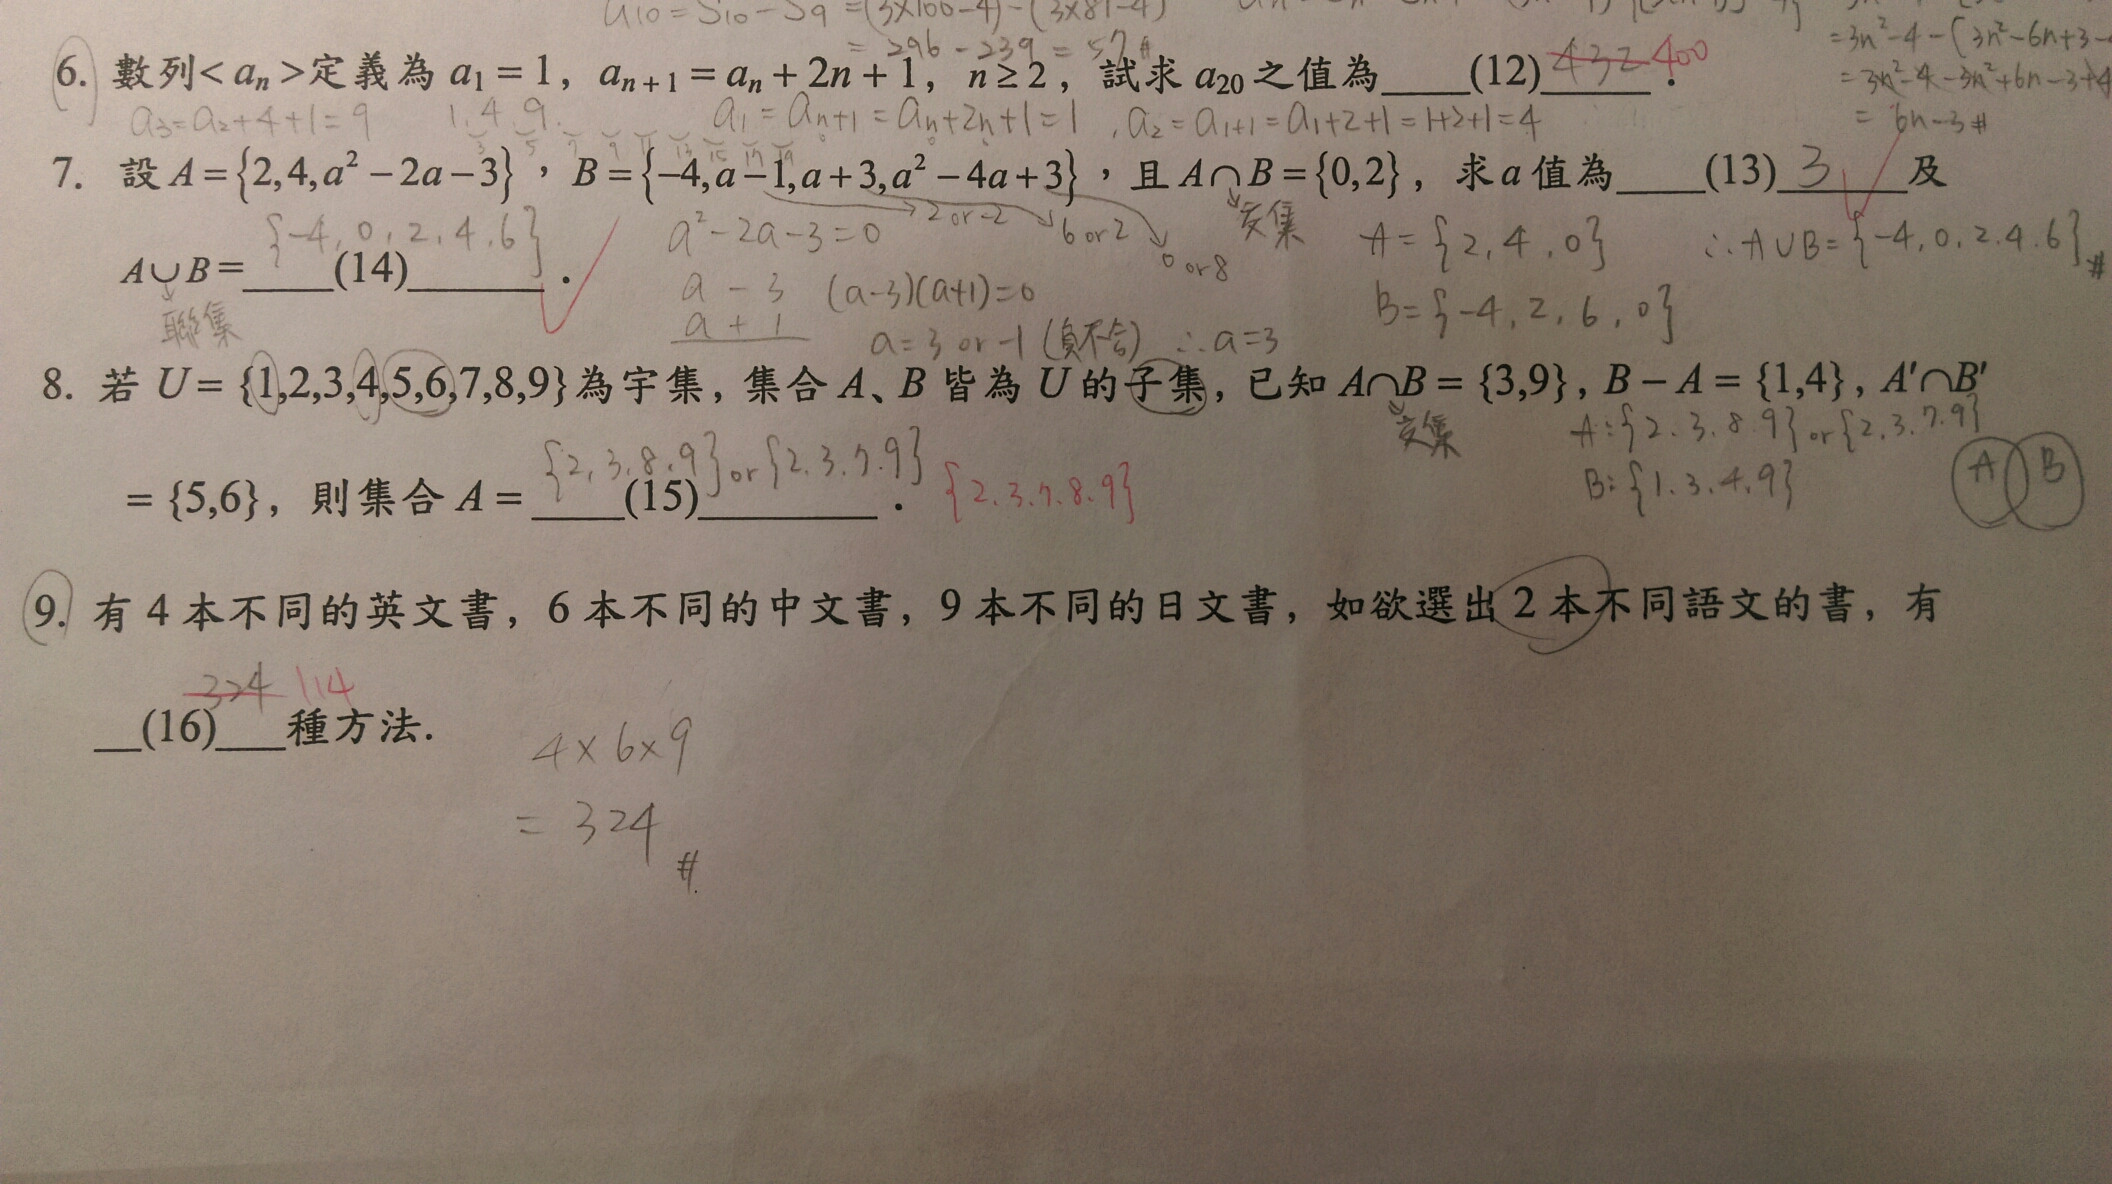 a10 = S10 - S9 = (3×100-4) - (3×81-4)
= 296 - 239 = 57 #
= 3n²-4-(3n²-6n+3-
= 3n²-4-3n²+6n-3+4
= 6n-3 #
6. 數列< aₙ >定義為 a₁ = 1, aₙ₊₁ = aₙ + 2n + 1, n ≥ 2, 試求 a₂₀ 之值為____(12) 432 400 .
a₃ = a₂+4+1 = 9 1. 4. 9. a₁ = aₙ₊₁ = aₙ+2n+1 = 1 , a₂ = a₁₊₁ = a₁+2+1 = 1+2+1 = 4
3 5 7 9 11 13 15 17 19
7. 設 A = {2,4,a² − 2a − 3}, B = {−4,a −1,a + 3,a² − 4a + 3}, 且 A∩B = {0,2}, 求 a 值為____(13) 3 及
2 or -2 6 or 2 0 or 8 交集
{-4, 0, 2, 4, 6} a²-2a-3=0 A = {2, 4, 0} ∴A∪B = {-4, 0, 2. 4. 6} #
A∪B = ____(14)______ .
聯集 a - 3 (a-3)(a+1)=0 B = {-4, 2, 6, 0}
a + 1
a = 3 or -1 (負不合) ∴a=3
8. 若 U = {1,2,3,4,5,6,7,8,9}為宇集, 集合 A、B 皆為 U 的子集, 已知 A∩B = {3,9}, B − A = {1,4}, A′∩B′
交集 A:{2. 3. 8. 9} or {2. 3. 7. 9}
{2, 3, 8, 9} or {2. 3. 7. 9} B:{1. 3. 4. 9} A B
= {5,6}, 則集合 A = ____(15)________ . {2. 3. 7. 8. 9}
9. 有 4 本不同的英文書, 6 本不同的中文書, 9 本不同的日文書, 如欲選出 2 本不同語文的書, 有
324 114
__(16)___種方法.
4×6×9
= 324 #